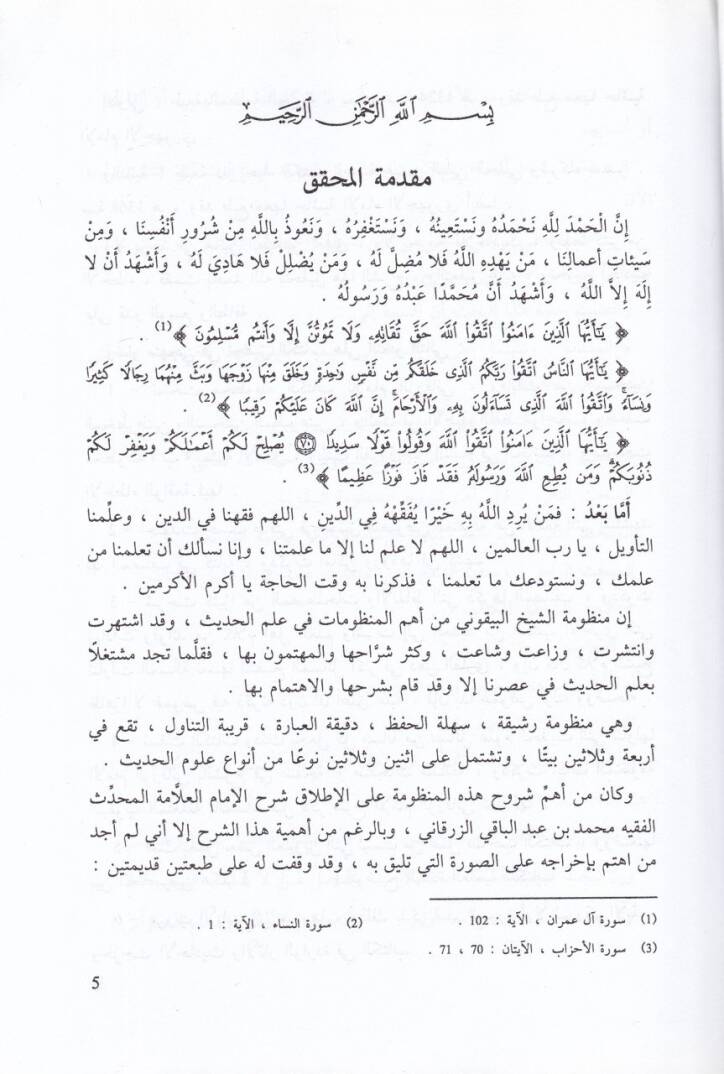 بِسْمِ ٱللَّهِ ٱلرَّحْمَٰنِ ٱلرَّحِيمِ
مقدمة المحقق
إِنَّ الْحَمْدَ لِلَّهِ نَحْمَدُهُ وَنَسْتَعِينُهُ ، وَنَسْتَغْفِرُهُ ، وَنَعُوذُ بِاللَّهِ مِنْ شُرُورِ أَنْفُسِنَا ، وَمِنْ
سَيئاتِ أعمالِنَا ، مَنْ يَهْدِهِ اللَّهُ فَلا مُضِلَّ لَهُ ، وَمَنْ يُضْلِلْ فَلا هَادِيَ لَهُ ، وَأَشْهَدُ أَنْ لا
إِلَهَ إِلاَّ اللَّهُ ، وَأَشْهَدُ أَنَّ مُحَمَّدًا عَبْدُهُ وَرَسُولُهُ .
﴿ يَٰٓأَيُّهَا ٱلَّذِينَ ءَامَنُوا۟ ٱتَّقُوا۟ ٱللَّهَ حَقَّ تُقَاتِهِۦ وَلَا تَمُوتُنَّ إِلَّا وَأَنتُم مُّسْلِمُونَ ﴾(1) .
﴿ يَٰٓأَيُّهَا ٱلنَّاسُ ٱتَّقُوا۟ رَبَّكُمُ ٱلَّذِى خَلَقَكُم مِّن نَّفْسٍ وَٰحِدَةٍ وَخَلَقَ مِنْهَا زَوْجَهَا وَبَثَّ مِنْهُمَا رِجَالًا كَثِيرًا
وَنِسَآءً ۚ وَٱتَّقُوا۟ ٱللَّهَ ٱلَّذِى تَسَآءَلُونَ بِهِۦ وَٱلْأَرْحَامَ ۚ إِنَّ ٱللَّهَ كَانَ عَلَيْكُمْ رَقِيبًا ﴾(2) .
﴿ يَٰٓأَيُّهَا ٱلَّذِينَ ءَامَنُوا۟ ٱتَّقُوا۟ ٱللَّهَ وَقُولُوا۟ قَوْلًا سَدِيدًا ۝٧٠ يُصْلِحْ لَكُمْ أَعْمَٰلَكُمْ وَيَغْفِرْ لَكُمْ
ذُنُوبَكُمْ ۗ وَمَن يُطِعِ ٱللَّهَ وَرَسُولَهُۥ فَقَدْ فَازَ فَوْزًا عَظِيمًا ﴾(3) .
أَمَّا بَعْدُ : فَمَنْ يُرِدِ اللَّهُ بِهِ خَيْرًا يُفَقِّهْهُ فِي الدِّينِ ، اللهم فقهنا في الدين ، وعلِّمنا
التأويل ، يا رب العالمين ، اللهم لا علم لنا إلا ما علمتنا ، وإنا نسألك أن تعلمنا من
علمك ، ونستودعك ما تعلمنا ، فذكرنا به وقت الحاجة يا أكرم الأكرمين .
إن منظومة الشيخ البيقوني من أهم المنظومات في علم الحديث ، وقد اشتهرت
وانتشرت ، وزاعت وشاعت ، وكثر شرَّاحها والمهتمون بها ، فقلَّما تجد مشتغلًا
بعلم الحديث في عصرنا إلا وقد قام بشرحها والاهتمام بها .
وهي منظومة رشيقة ، سهلة الحفظ ، دقيقة العبارة ، قريبة التناول ، تقع في
أربعة وثلاثين بيتًا ، وتشتمل على اثنين وثلاثين نوعًا من أنواع علوم الحديث .
وكان من أهمِّ شروح هذه المنظومة على الإطلاق شرح الإمام العلَّامة المحدِّث
الفقيه محمد بن عبد الباقي الزرقاني ، وبالرغم من أهمية هذا الشرح إلا أني لم أجد
من اهتم بإخراجه على الصورة التي تليق به ، وقد وقفت له على طبعتين قديمتين :
(1) سورة آل عمران ، الآية : 102 . (2) سورة النساء ، الآية : 1 .
(3) سورة الأحزاب ، الآيتان : 70 ، 71 .
5